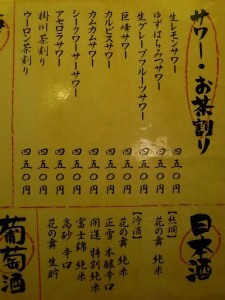 サワー・お茶割り
生レモンサワー 四五〇円
ゆずはちみつサワー 四五〇円
生グレープフルーツサワー 四五〇円
巨峰サワー 四五〇円
カルピスサワー 四五〇円
カムカムサワー 四五〇円
シークワーサーサワー 四五〇円
アセロラサワー 四五〇円
掛川茶割り 四五〇円
ウーロン茶割り 四五〇円
日本酒
【熱燗】
花の舞 純米
【冷酒】
花の舞 純米
正雪 本醸辛口
開運 特別純米
富士錦 純米
高砂 辛口
花の舞 生貯
葡萄酒